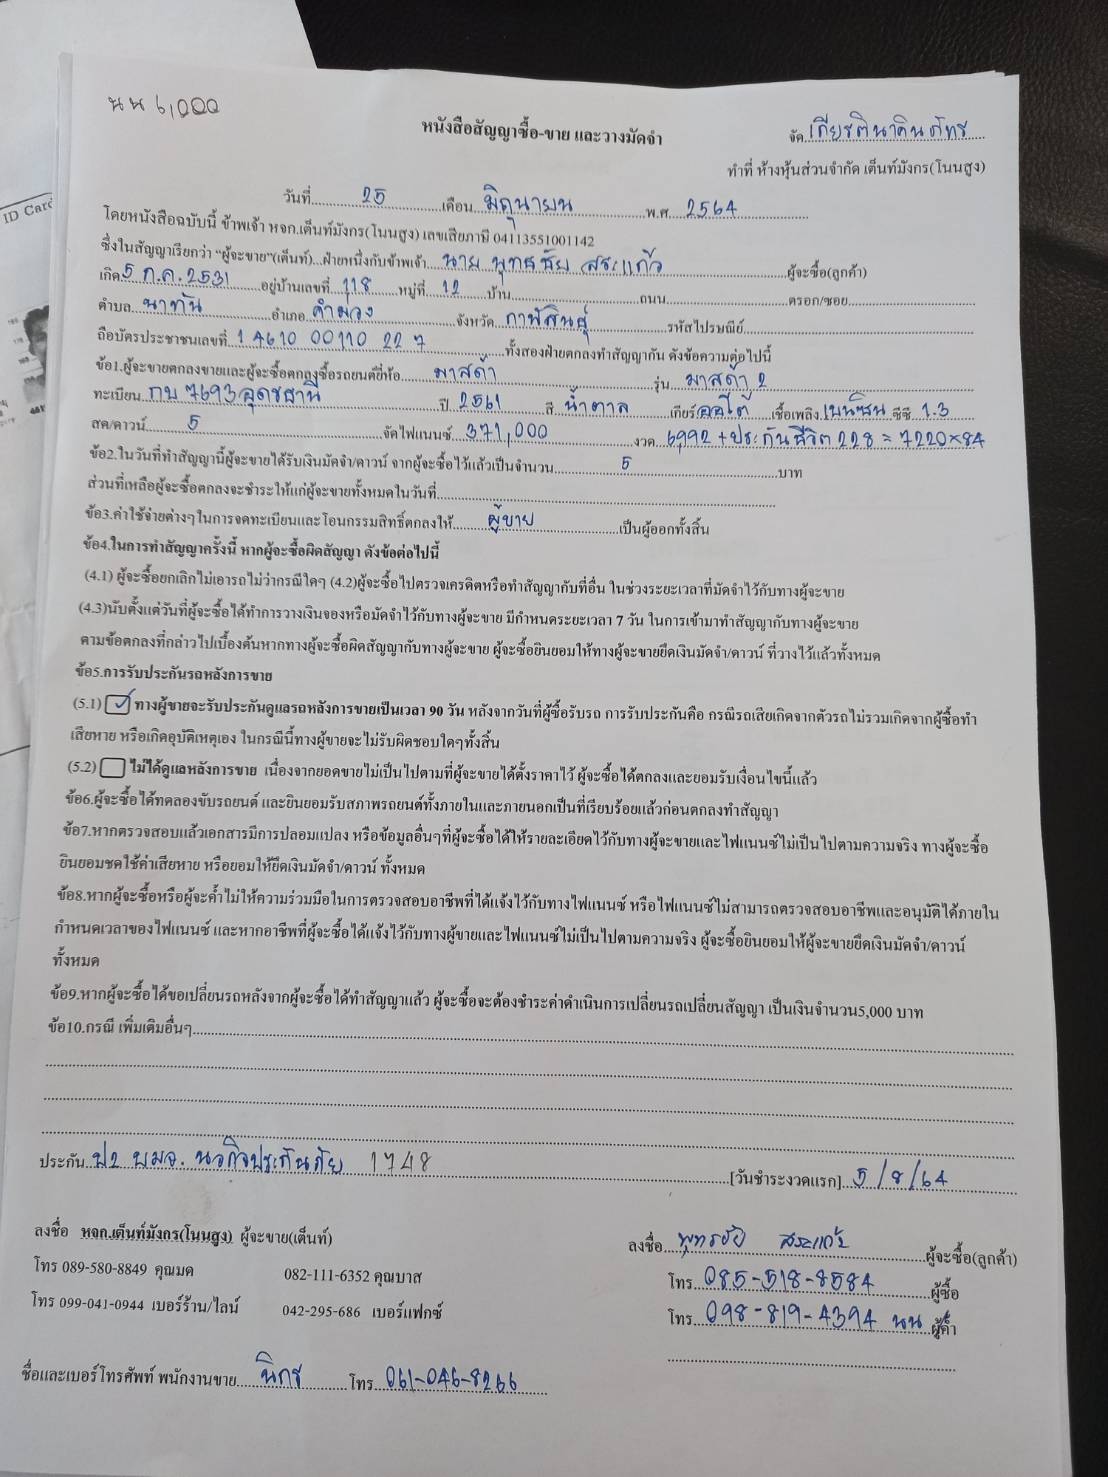 นน 61,000
หนังสือสัญญาซื้อ-ขาย และวางมัดจำ
จัด เกียรตินาคินภัทร
ทำที่ ห้างหุ้นส่วนจำกัด เต็นท์มังกร(โนนสูง)
วันที่ 25 เดือน มิถุนายน พ.ศ. 2564
โดยหนังสือฉบับนี้ ข้าพเจ้า หจก.เต็นท์มังกร(โนนสูง) เลขเสียภาษี 04113551001142
ซึ่งในสัญญาเรียกว่า "ผู้จะขาย"(เต็นท์)...ฝ่ายหนึ่งกับข้าพเจ้า นาย พุทธชัย สระแก้ว ผู้จะซื้อ(ลูกค้า)
เกิด 5 ก.ค. 2531 อยู่บ้านเลขที่ 118 หมู่ที่ 12 บ้าน ถนน ตรอก/ซอย
ตำบล นาทัน อำเภอ คำม่วง จังหวัด กาฬสินธุ์ รหัสไปรษณีย์
ถือบัตรประชาชนเลขที่ 1 4610 00110 22 7 ทั้งสองฝ่ายตกลงทำสัญญากัน ดังข้อความต่อไปนี้
ข้อ1.ผู้จะขายตกลงขายและผู้จะซื้อตกลงซื้อรถยนต์ยี่ห้อ มาสด้า รุ่น มาสด้า 2
ทะเบียน กบ 7693 อุดรธานี ปี 2561 สี น้ำตาล เกียร์ ออโต้ เชื้อเพลิง เบนซิน ซีซี 1.3
สด/ดาวน์ 5 จัดไฟแนนซ์ 371,000 งวด 6992 + ประกันชีวิต 228 = 7220×84
ข้อ2.ในวันที่ทำสัญญานี้ผู้จะขายได้รับเงินมัดจำ/ดาวน์ จากผู้จะซื้อไว้แล้วเป็นจำนวน 5 บาท
ส่วนที่เหลือผู้จะซื้อตกลงจะชำระให้แก่ผู้จะขายทั้งหมดในวันที่
ข้อ3.ค่าใช้จ่ายต่างๆในการจดทะเบียนและโอนกรรมสิทธิ์ตกลงให้ ผู้ขาย เป็นผู้ออกทั้งสิ้น
ข้อ4.ในการทำสัญญาครั้งนี้ หากผู้จะซื้อผิดสัญญา ดังข้อต่อไปนี้
(4.1) ผู้จะซื้อยกเลิกไม่เอารถไม่ว่ากรณีใดๆ (4.2)ผู้จะซื้อไปตรวจเครดิตหรือทำสัญญากับที่อื่น ในช่วงระยะเวลาที่มัดจำไว้กับทางผู้จะขาย
(4.3)นับตั้งแต่วันที่ผู้จะซื้อได้ทำการวางเงินจองหรือมัดจำไว้กับทางผู้จะขาย มีกำหนดระยะเวลา 7 วัน ในการเข้ามาทำสัญญากับทางผู้จะขาย
ตามข้อตกลงที่กล่าวไปเบื้องต้นหากทางผู้จะซื้อผิดสัญญากับทางผู้จะขาย ผู้จะซื้อยินยอมให้ทางผู้จะขายยึดเงินมัดจำ/ดาวน์ ที่วางไว้แล้วทั้งหมด
ข้อ5.การรับประกันรถหลังการขาย
(5.1) ✓ ทางผู้ขายจะรับประกันดูแลรถหลังการขายเป็นเวลา 90 วัน หลังจากวันที่ผู้ซื้อรับรถ การรับประกันคือ กรณีรถเสียเกิดจากตัวรถไม่รวมเกิดจากผู้ซื้อทำ
เสียหาย หรือเกิดอุบัติเหตุเอง ในกรณีนี้ทางผู้ขายจะไม่รับผิดชอบใดๆทั้งสิ้น
(5.2) ไม่ได้ดูแลหลังการขาย เนื่องจากยอดขายไม่เป็นไปตามที่ผู้จะขายได้ตั้งราคาไว้ ผู้จะซื้อได้ตกลงและยอมรับเงื่อนไขนี้แล้ว
ข้อ6.ผู้จะซื้อได้ทดลองขับรถยนต์ และยินยอมรับสภาพรถยนต์ทั้งภายในและภายนอกเป็นที่เรียบร้อยแล้วก่อนตกลงทำสัญญา
ข้อ7.หากตรวจสอบแล้วเอกสารมีการปลอมแปลง หรือข้อมูลอื่นๆที่ผู้จะซื้อได้ให้รายละเอียดไว้กับทางผู้จะขายและไฟแนนซ์ไม่เป็นไปตามความจริง ทางผู้จะซื้อ
ยินยอมชดใช้ค่าเสียหาย หรือยอมให้ยึดเงินมัดจำ/ดาวน์ ทั้งหมด
ข้อ8.หากผู้จะซื้อหรือผู้จะค้ำไม่ให้ความร่วมมือในการตรวจสอบอาชีพที่ได้แจ้งไว้กับทางไฟแนนซ์ หรือไฟแนนซ์ไม่สามารถตรวจสอบอาชีพและอนุมัติได้ภายใน
กำหนดเวลาของไฟแนนซ์ และหากอาชีพที่ผู้จะซื้อได้แจ้งไว้กับทางผู้ขายและไฟแนนซ์ไม่เป็นไปตามความจริง ผู้จะซื้อยินยอมให้ผู้จะขายยึดเงินมัดจำ/ดาวน์
ทั้งหมด
ข้อ9.หากผู้จะซื้อได้ขอเปลี่ยนรถหลังจากผู้จะซื้อได้ทำสัญญาแล้ว ผู้จะซื้อจะต้องชำระค่าดำเนินการเปลี่ยนรถเปลี่ยนสัญญา เป็นเงินจำนวน5,000 บาท
ข้อ10.กรณี เพิ่มเติมอื่นๆ
ประกัน ป2 บมจ. นวกิจประกันภัย 1748 [วันชำระงวดแรก] 5/8/64
ลงชื่อ หจก.เต็นท์มังกร(โนนสูง) ผู้จะขาย(เต็นท์)
ลงชื่อ พุทธชัย สระแก้ว ผู้จะซื้อ(ลูกค้า)
โทร 089-580-8849 คุณมด 082-111-6352 คุณบาส
โทร 085-518-8584 ผู้ซื้อ
โทร 099-041-0944 เบอร์ร้าน/ไลน์ 042-295-686 เบอร์แฟกซ์
โทร 098-819-4394 นน ผู้ค้ำ
ชื่อและเบอร์โทรศัพท์ พนักงานขาย นิกร โทร 061-046-8266
ID Card